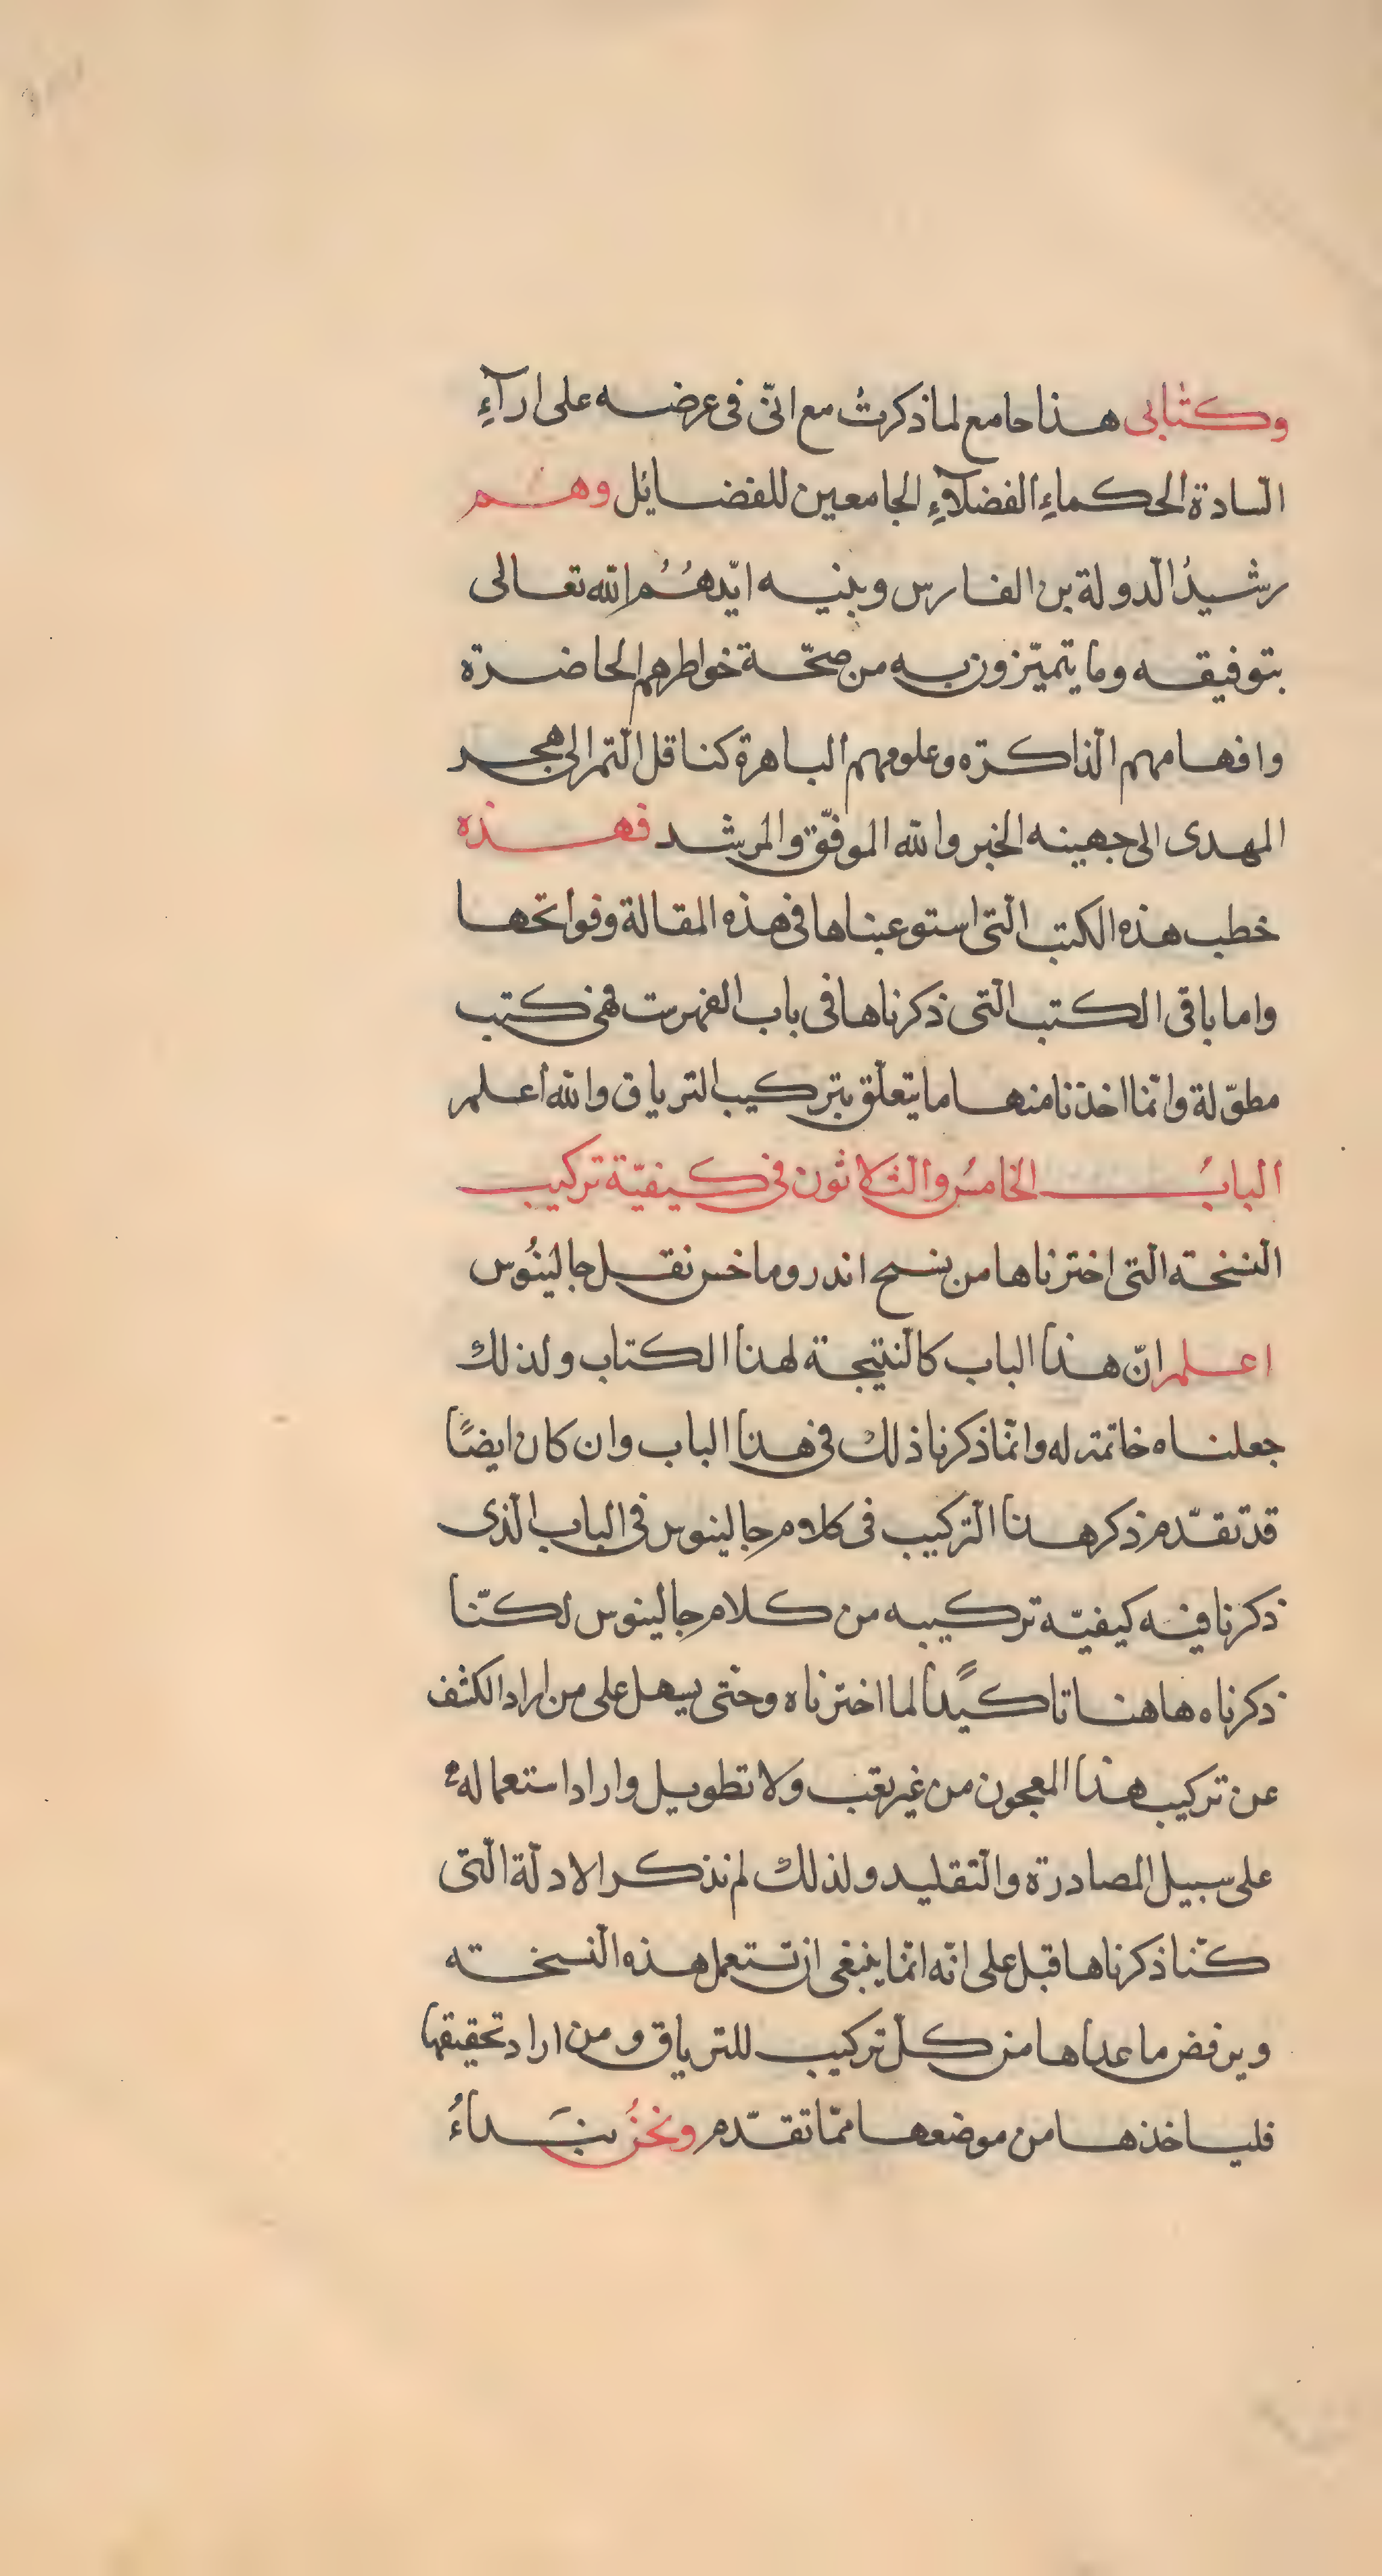 وكتابى هذا جامع لما ذكرتُ مع انّى فى عرضه على ارآءِ
السّادة الحكماءِ الفضلآءِ الجامعين للفضايل وهم
رشيدُ الدّولة بن الفارس وبنيه ايّدهُمُ الله تعالى
بتوفيقه وما يتميّزون به من صحّة خواطرهم الحاضرة
وافهامهم الذّاكرة وعلومهم الباهرة كناقل التّمر الى هجر
المهدى الى جهينه الخبر والله الموفّق والمرشد فهذه
خطب هذه الكتب الّتى استوعبناها فى هذه المقالة وفواتحها
واما باقى الكتب الّتى ذكرناها فى باب الفهرست فهى كتب
مطوّلة وانّما اخذنا منها ما يتعلّق بتركيب الترياق والله اعلم
البابُ الخامسُ والثلاثون فى كيفيّة تركيب
النّسخة الّتى اخترناها من نسخ اندروماخس نقل جالينُوس
اعلم انّ هذا الباب كالنّتيجة لهذا الكتاب ولذلك
جعلناه خاتمة له وانّما ذكرنا ذلك فى هذا الباب وان كان ايضًا
قد تقدّم ذكر هذا التّركيب فى كلام جالينوس فى الباب الّذى
ذكرنا فيه كيفيّة تركيبه من كلام جالينوس لكنّا
ذكرناه هاهنا تاكيدًا لما اخترناه وحتى يسهل على من اراد الكشف
عن تركيب هذا المعجون من غير تعب ولا تطويل واراد استعماله
على سبيل المصادرة والتّقليد ولذلك لم نذكر الادلّة الّتى
كنّا ذكرناها قبل على انّه انّما ينبغى ان تستعمل هذه النّسخة
ويرفض ما عداها من كلّ تركيب للترياق ومن اراد تحقيقها
فلياخذها من موضعها ممّا تقدّم ونحنُ نبَداءُ